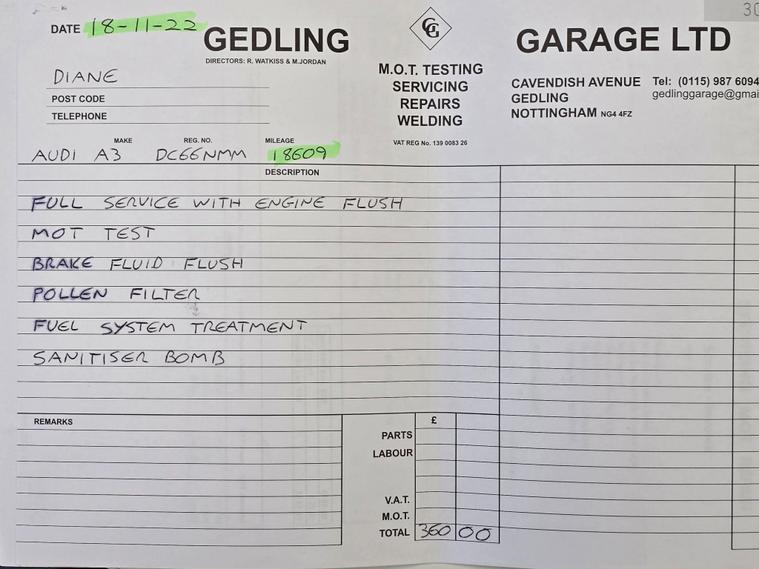 30
DATE 18-11-22
GEDLING GG GARAGE LTD
DIRECTORS: R. WATKISS & M.JORDAN
DIANE
POST CODE
TELEPHONE
M.O.T. TESTING
SERVICING
REPAIRS
WELDING
VAT REG No. 139 0083 26
CAVENDISH AVENUE
GEDLING
NOTTINGHAM NG4 4FZ
Tel: (0115) 987 6094
gedlinggarage@gmai
MAKE REG. NO. MILEAGE
AUDI A3 DC66NMM 18609
DESCRIPTION
FULL SERVICE WITH ENGINE FLUSH
MOT TEST
BRAKE FLUID FLUSH
POLLEN FILTER
FUEL SYSTEM TREATMENT
SANITISER BOMB
REMARKS
£
PARTS
LABOUR
V.A.T.
M.O.T.
TOTAL 360 00